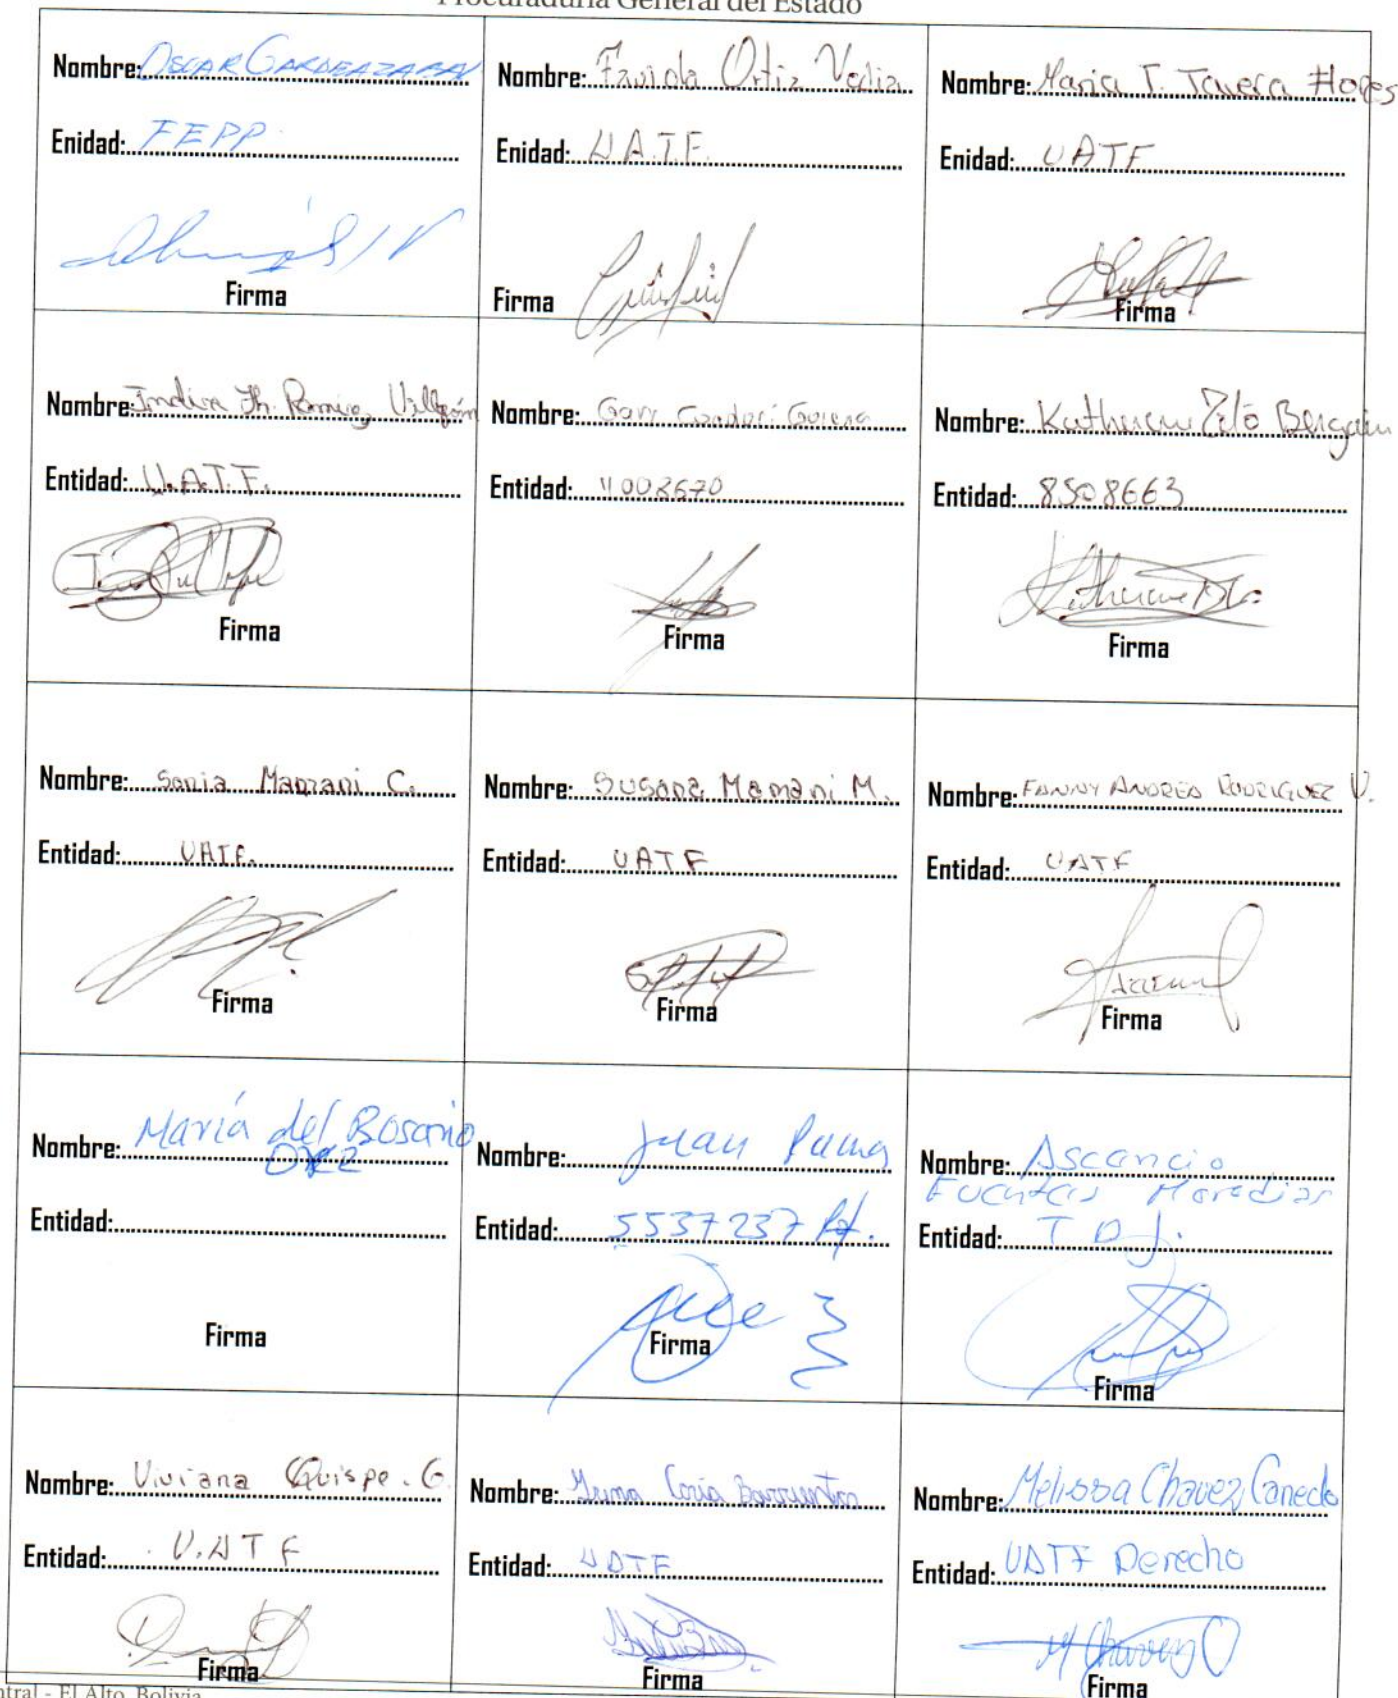 Procuraduría General del Estado
Nombre: OSCAR GARDEAZABAL
Enidad: FEPP
Firma
Nombre: Faviola Ortiz Vedia
Enidad: U.A.T.F.
Firma
Nombre: Maria T. Tavera Flores
Enidad: UATF
Firma
Nombre: Indira Th. Ramirez Villegas
Entidad: U.A.T.F.
Firma
Nombre: Gary
Entidad: 11008670
Firma
Nombre: Katherine
Entidad: 8508663
Firma
Nombre: Sonia Mamani C.
Entidad: UATF.
Firma
Nombre: Susana Mamani M.
Entidad: UATF
Firma
Nombre: FANNY ANDREA RODRIGUEZ V.
Entidad: UATF
Firma
Nombre: María del Rosario
Entidad:
Firma
Nombre: Juan Puma
Entidad: 5537237 Pt.
Firma
Nombre: Ascencio
Fuentes Heredias
Entidad: T D J.
Firma
Nombre: Viviana Quispe. G.
Entidad: U.ATF
Firma
Nombre: Coria Barrientos
Entidad: UATF
Firma
Nombre: Melissa Chavez Canedo
Entidad: UATF Derecho
M Chavez C
Firma
ntral - El Alto, Bolivia